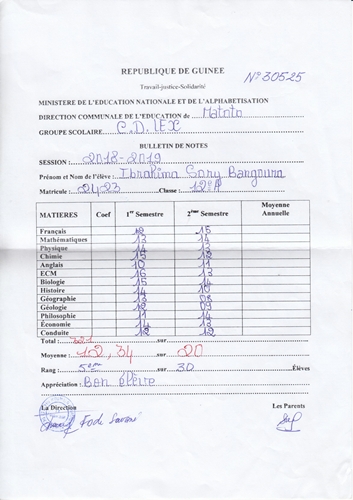 REPUBLIQUE DE GUINEE
N° 30525
Travail-justice-Solidarité
MINISTERE DE L'EDUCATION NATIONALE ET DE L'ALPHABETISATION
DIRECTION COMMUNALE DE L'EDUCATION de Matoto
GROUPE SCOLAIRE C.D. LEX
BULLETIN DE NOTES
SESSION : 2018-2019
Prénom et Nom de l'élève : Ibrahima Sory Bangoura
Matricule : 2423 Classe : 12e
MATIERES Coef 1er Semestre 2ème Semestre Moyenne Annuelle
Français 15
Mathématiques 13 14
Physique 14 13
Chimie 15 12
Anglais 10 11
ECM 16 13
Biologie 15 14
Histoire 14 10
Géographie 13 08
Géologie 12 09
Philosophie 11 14
Économie 14 13
Conduite 12 12
Total : 321 sur
Moyenne : 12,34 sur 20
Rang : 5ème sur 30 Élèves
Appréciation : Bon élève
La Direction Les Parents
Fodé